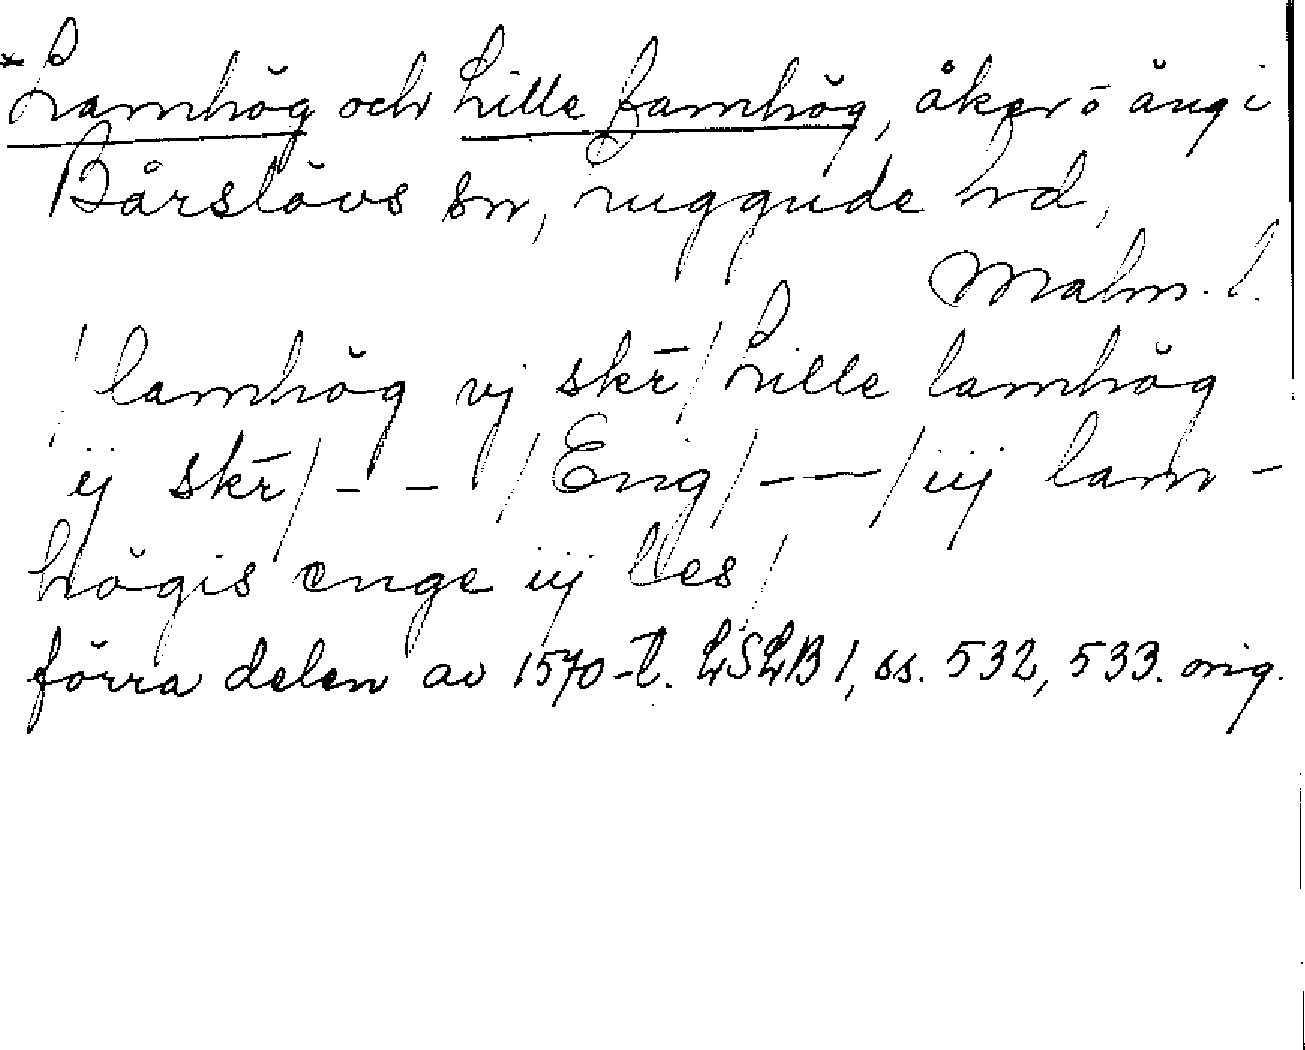 *Lamhög och Lille lamhög, åker o äng i
Bårslövs sn, Luggude hd,
Malm. l.
/ lamhög vj skr̄ / Lille lamhög
ij skr̄ / - - / Eng / - - - / iij lam-
högis enge iij les /
förra delen av 1570-t. LSLB 1, ss. 532, 533. orig.